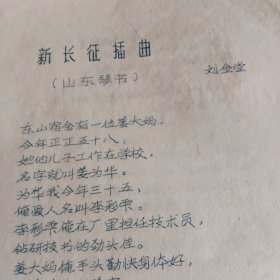 新长征插曲
(山东琴书)
刘金堂
东山宿舍有一位姜大妈,
今年正正五十八,
她的儿子工作在学校,
名字就叫姜为华。
为华我今年三十五,
俺爱人名叫李彩霞。
李彩霞俺在厂里担任技术员,
钻研技术的劲头佳。
姜大妈俺手头勤快身体好,